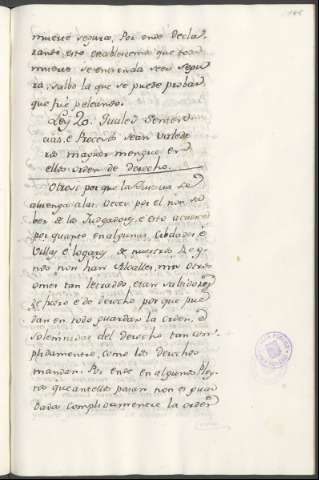 muerte segura, Por ende Decla-
rando, esto establecemos que toda
muerte se entienda ser segu
ra, salbo la que se puede probar
que fué peleando.
Ley 20. Quales Senten-
cias, é Procesos sean valede-
ros magüer mengue en
ellos orden de derecho.
Otrosi porque la Justicia se
aluenga a las veces por el non sa-
ber de los Judgadores, é esto acuesce
por quanto en algunas Cibdades é
Villas é logares de nuestros Reg-
nos non han Alcalles, nin otros
omes tan letrados, é tan sabidores
de fuero é de derecho por que pue-
dan en todo guardar la orden, é
solemnidat del derecho tan com-
plidamente, como los derechos
mandan. Por ende en algunos Pley-
tos que ante ellos pasan non es guar
dada complidamente la orden